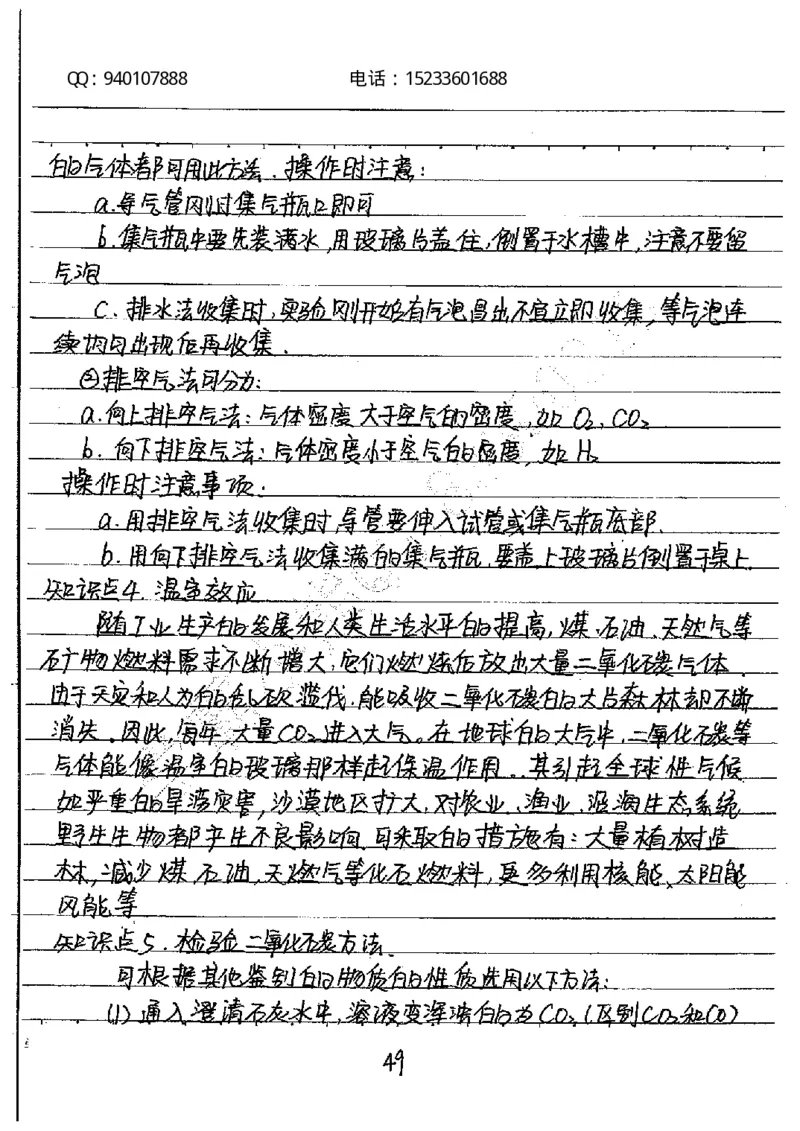 QQ：940107888 电话：15233601688
的气体都可用此方法．操作时注意：
a.导气管刚过集气瓶口即可
b.集气瓶中要先装满水，用玻璃片盖住，倒置于水槽中，注意不要留
气泡
C．排水法收集时，实验刚开始有气泡冒出不宜立即收集，等气泡连
续均匀出现后再收集．
②排空气法可分为：
a.向上排空气法：气体密度大于空气的密度，如O₂，CO₂
b．向下排空气法：气体密度小于空气的密度，如H₂
操作时注意事项：
a．用排空气法收集时，导管要伸入试管或集气瓶底部．
b．用向下排空气法收集满的集气瓶，要盖上玻璃片倒置于桌上．
知识点4．温室效应
随工业生产的发展和人类生活水平的提高，煤、石油、天然气等
矿物燃料需求不断增大，它们燃烧后放出大量二氧化碳气体．
由于天灾和人为的乱砍滥伐，能吸收二氧化碳的大片森林却不断
消失．因此，每年，大量CO₂进入大气。在地球的大气中，二氧化碳等
气体能像温室的玻璃那样起保温作用．其引起全球性气候
如严重的旱涝灾害，沙漠地区扩大，对农业、渔业、沿海生态系统
野生生物都产生不良影响．可采取的措施有：大量植树造
林，减少煤，石油，天燃气等化石燃料，更多利用核能、太阳能
风能等
知识点5．检验二氧化碳方法．
可根据其他鉴别的物质的性质选用以下方法：
(1)通入澄清石灰水中，溶液变浑浊的为CO₂（区别CO₂和CO）
49